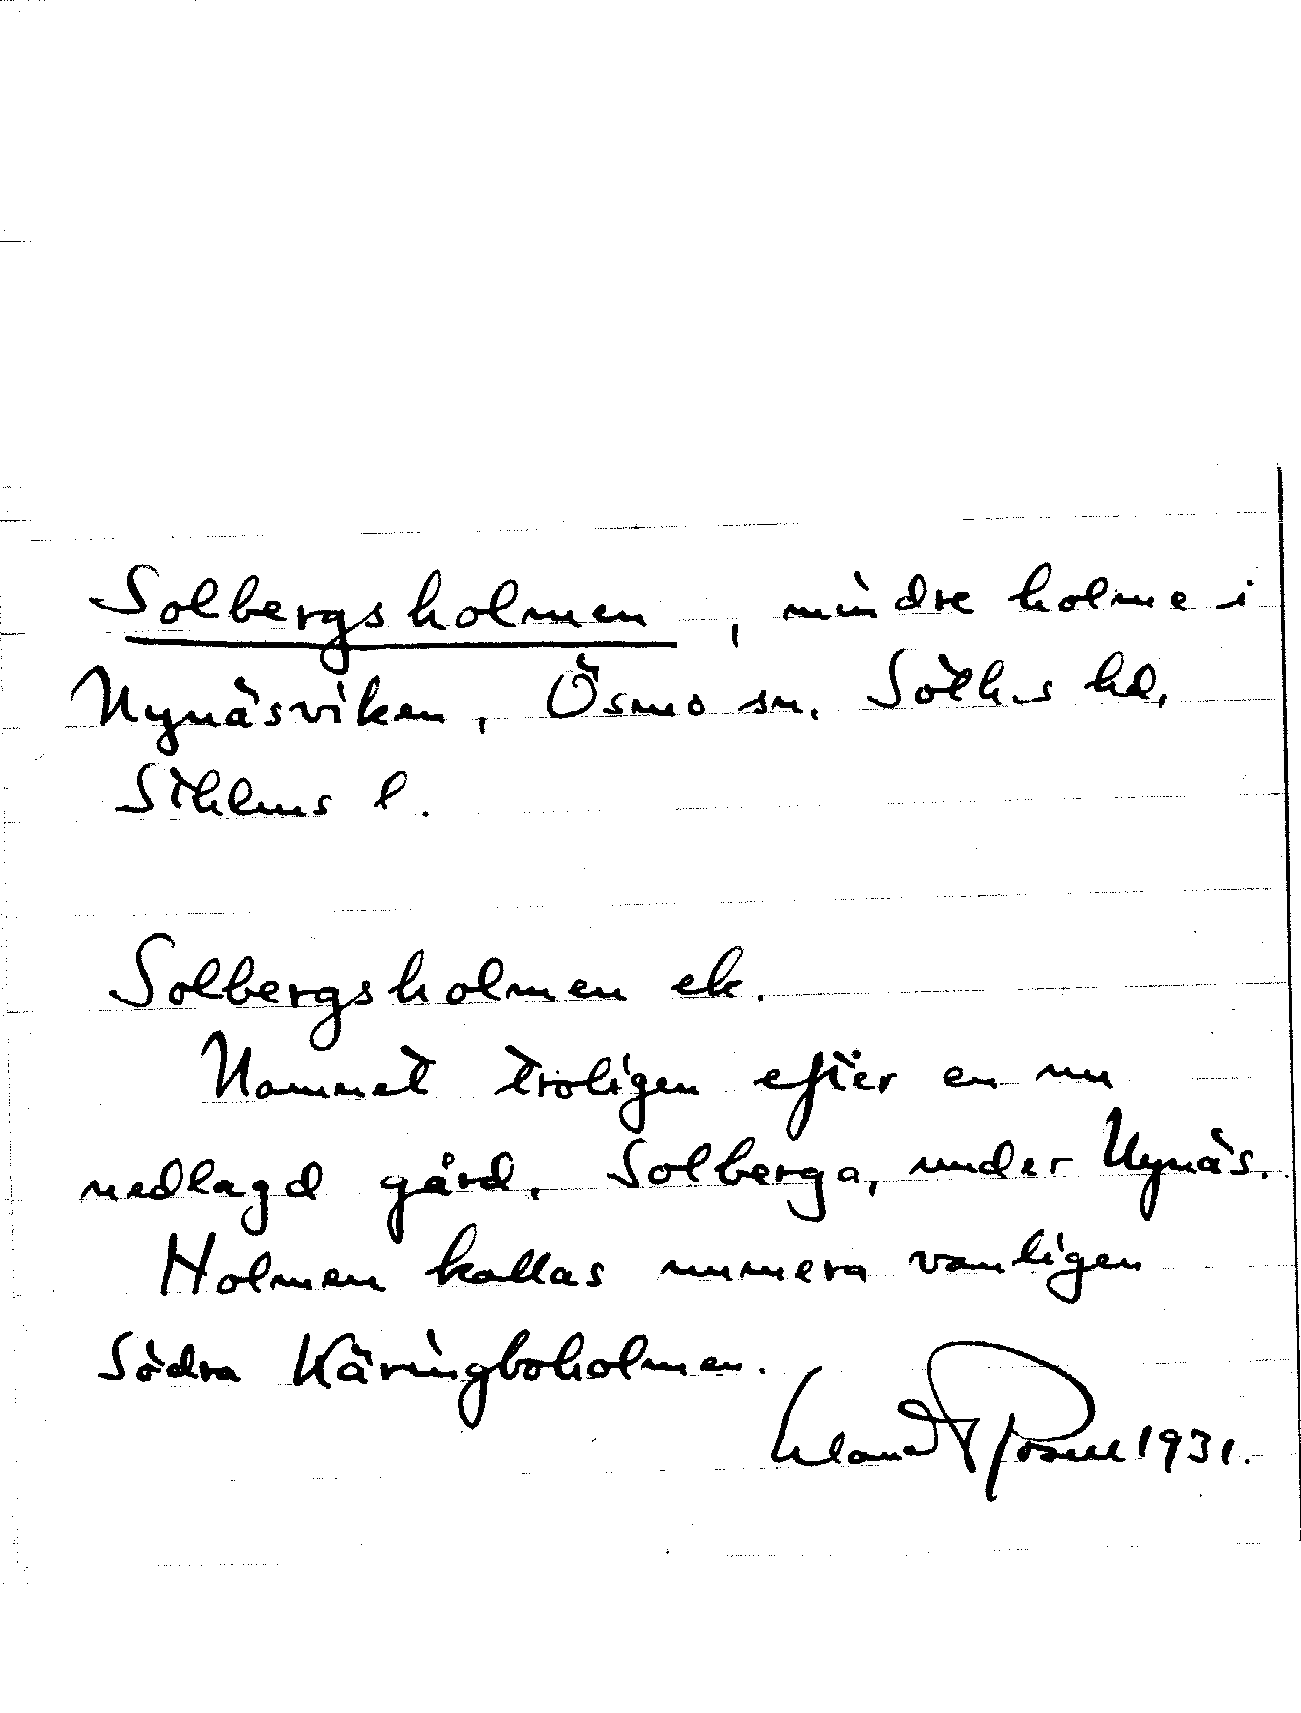 Solbergsholmen, mindre holme i
Nynäsviken, Ösmo sn. Soth.s hd,
Sthlms l.
Solbergsholmen ek.
Namnet troligen efter en nu
nedlagd gård, Solberga, under Nynäs.
Holmen kallas numera vanligen
Södra Käringboholmen.
1931.